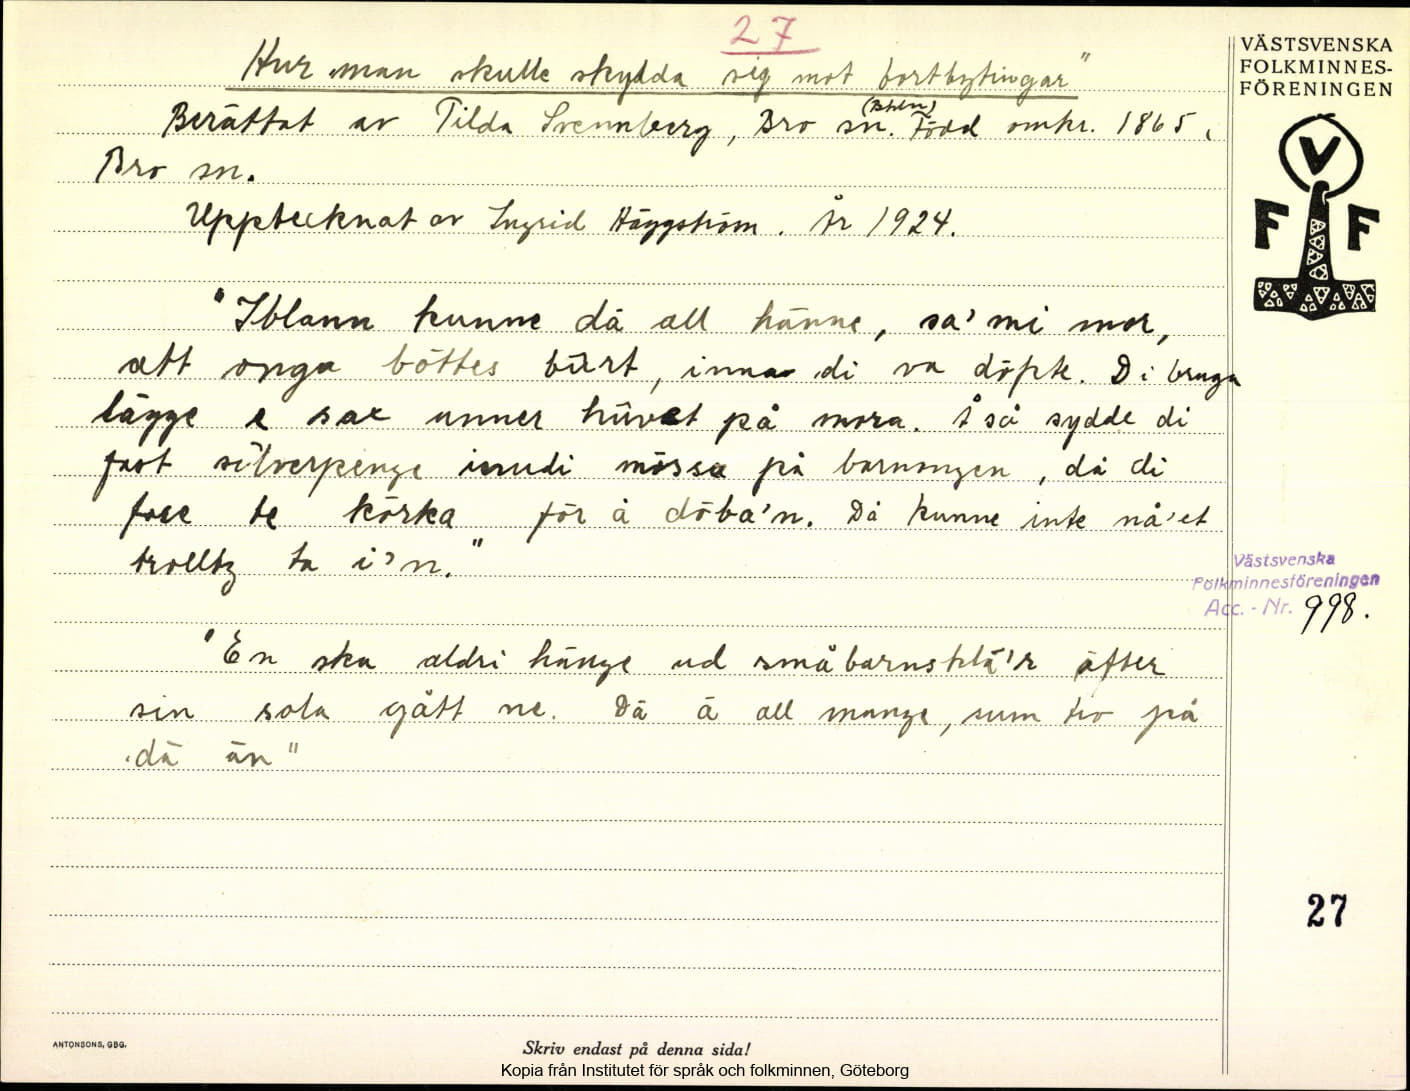 27
Hur man skulle skydda sig mot bortbytingar"
Berättat av Tilda Svennberg, Bro sn. (Bhln) Född omkr. 1865 i
Bro sn.
Upptecknat av Ingrid Häggström. År 1924.
"Iblann kunne dä all hänne, sa' mi mor,
att onga böttes bürt, inna di va döpte. Di bruga
lägge e sax unner hüvet på mora. Å så sydde di
fast silverpenge inudi mössa på barnongen, då di
foee te körka för å döba'n. Då kunne inte nå'et
trolltg ta i'n."
"En ska aldri hänge ud småbarnsklä'r äfter
sin sola gått ne. Dä ä all mange, sum tro på
dä än"
VÄSTSVENSKA
FOLKMINNES-
FÖRENINGEN
V
F F
Västsvenska
Folkminnesföreningen
Acc. - Nr. 998.
27
ANTONSONS, GBG.
Skriv endast på denna sida!
Kopia från Institutet för språk och folkminnen, Göteborg